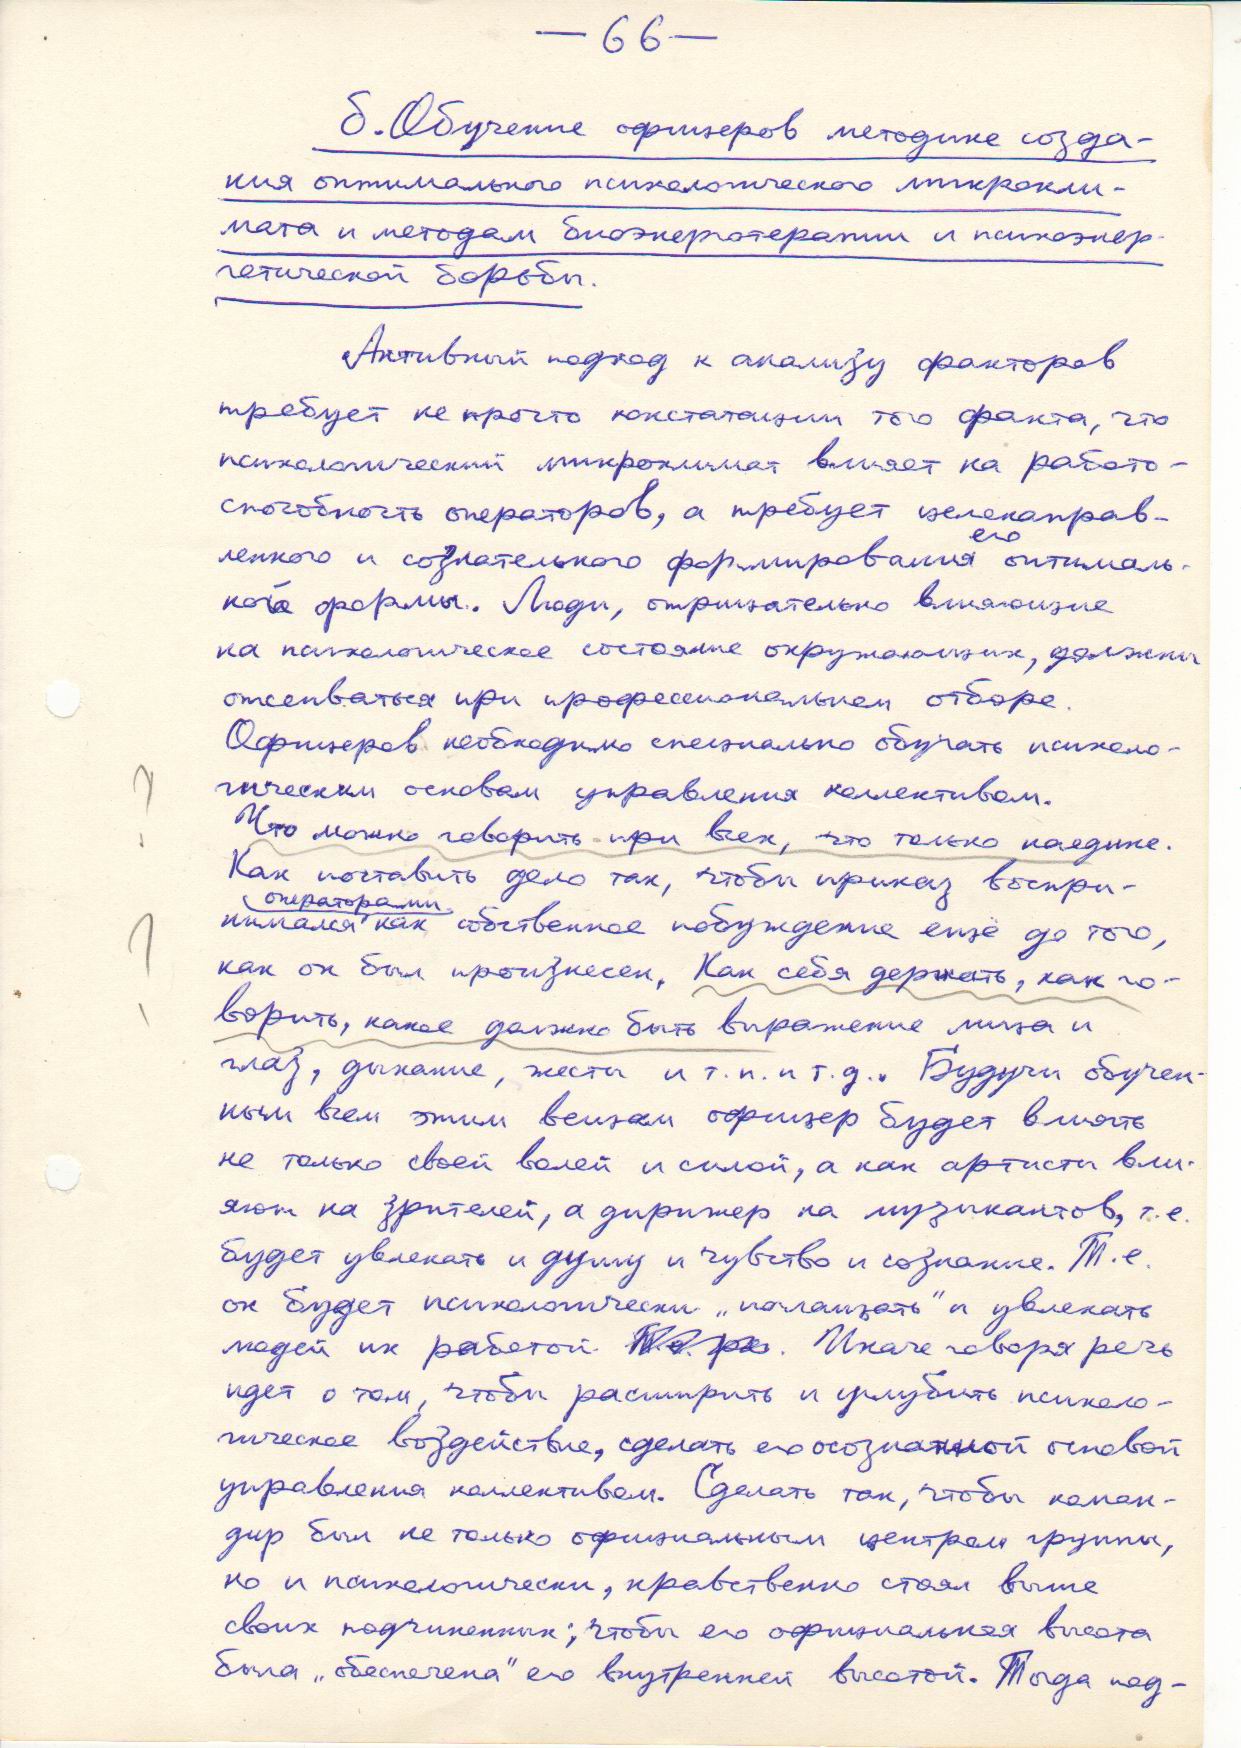 — 66 —
б. Обучение офицеров методике созда-
ния оптимального психологического микрокли-
мата и методам биоэнерготерапии и психоэнер-
гетической борьбы.
Активный подход к анализу факторов
требует не просто констатации того факта, что
психологический микроклимат влияет на работо-
способность операторов, а требует целенаправ-
ленного и сознательного формирования его оптималь-
ной формы. Люди, отрицательно влияющие
на психологическое состояние окружающих, должны
отсеиваться при профессиональном отборе.
Офицеров необходимо специально обучать психоло-
гическим основам управления коллективом.
Что можно говорить при всех, что только наедине.
Как поставить дело так, чтобы приказ воспри-
операторами
нимался как собственное побуждение ещё до того,
как он был произнесен. Как себя держать, как го-
ворить, какое должно быть выражение лица и
глаз, дыхание, жесты и т.п. и т.д.. Будучи обучен-
ным всем этим вещам офицер будет влиять
не только своей волей и силой, а как артисты вли-
яют на зрителей, а дирижер на музыкантов, т.е.
будет увлекать и душу и чувство и сознание. Т.е.
он будет психологически „поглащать" и увлекать
людей их работой. Иначе говоря речь
идет о том, чтобы расширить и углубить психоло-
гическое воздействие, сделать его осознанной основой
управления коллективом. Сделать так, чтобы коман-
дир был не только официальным центром группы,
но и психологически, нравственно стоял выше
своих подчиненных; чтобы его официальная высота
была „обеспечена" его внутренней высотой. Тогда под-